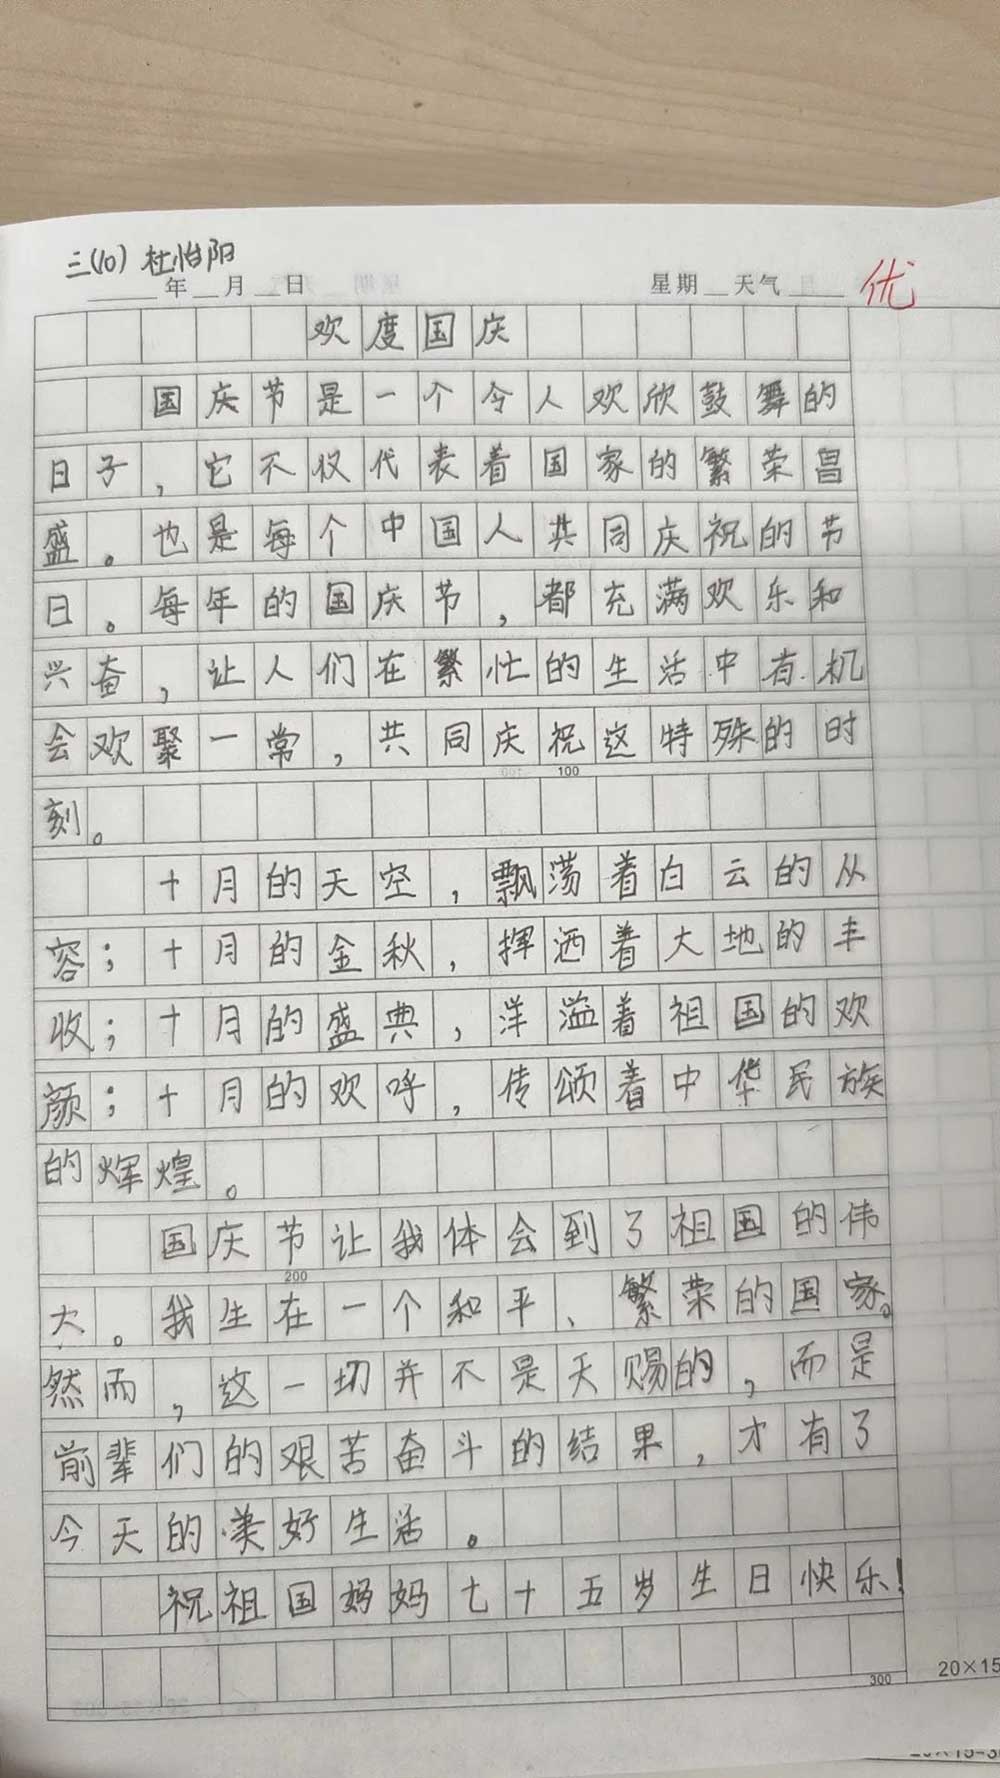 三(10) 杜怡阳
年 月 日 星期 天气
优
欢度国庆
国庆节是一个令人欢欣鼓舞的
日子，它不仅代表着国家的繁荣昌
盛。也是每个中国人共同庆祝的节
日。每年的国庆节，都充满欢乐和
兴奋，让人们在繁忙的生活中有机
会欢聚一常，共同庆祝这特殊的时
100
刻。
十月的天空，飘荡着白云的从
容；十月的金秋，挥洒着大地的丰
收；十月的盛典，洋溢着祖国的欢
颜；十月的欢呼，传颂着中华民族
的辉煌。
国庆节让我体会到了祖国的伟
200
大。我生在一个和平、繁荣的国家。
然而，这一切并不是天赐的，而是
前辈们的艰苦奋斗的结果，才有了
今天的美好生活。
祝祖国妈妈七十五岁生日快乐！
300
20×15